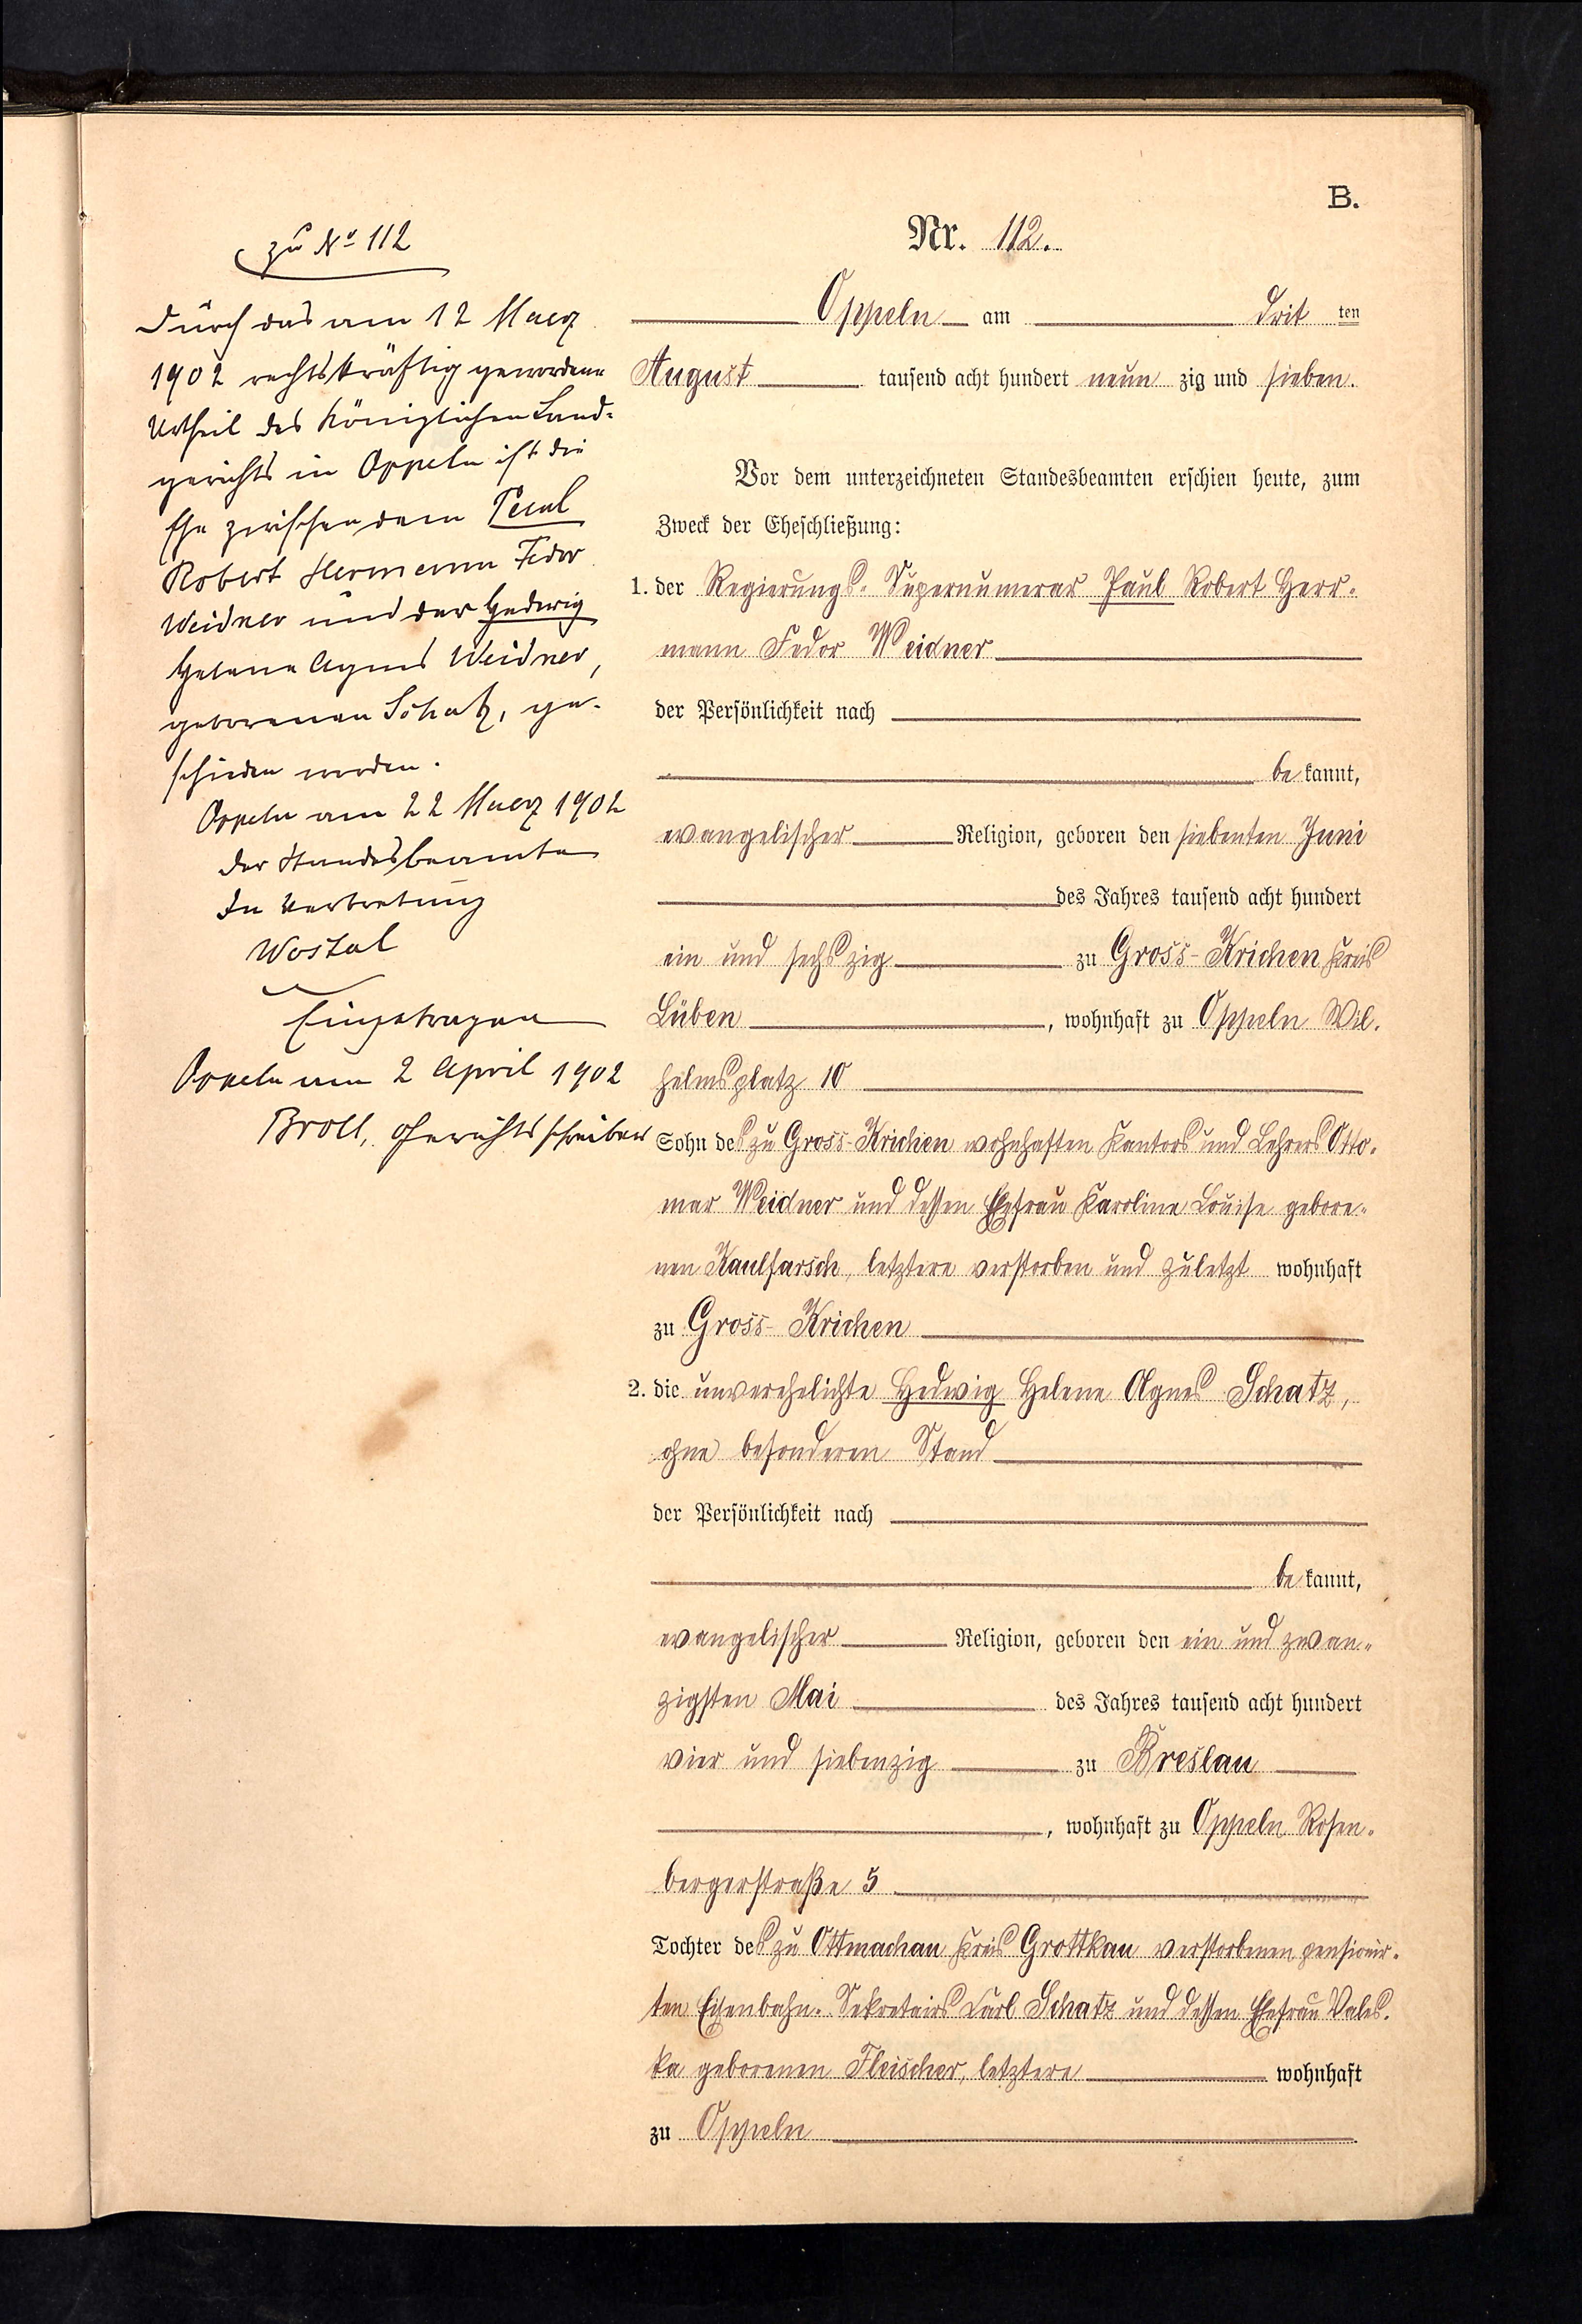 B.
zu No 112
Durch das am 12 Maerz
1902 rechtskräftig gewordene
Urtheil des Königlichen Land-
gerichts in Oppeln ist die
Ehe zwischen dem Paul
Robert Hermann Fedor
Weidner und der Hedwig
Helene Agnes Weidner,
geborenen Schatz, ge-
schieden worden.
Oppeln am 22 Maerz 1902
Der Standesbeamte
In Vertretung
Wostal
Eingetragen
Oppeln am 2 April 1902
Broll, Gerichtsschreiber
Nr. 112.
Oppeln am drit ten
August tausend acht hundert neun zig und sieben.
Vor dem unterzeichneten Standesbeamten erschien heute, zum
Zweck der Eheschließung:
1. der Regierungs-Supernumerar Paul Robert Herr-
mann Fedor Weidner
der Persönlichkeit nach
be kannt,
evangelischer Religion, geboren den siebenten Juni
des Jahres tausend acht hundert
ein und sechszig zu Gross-Krichen Kreis
Lüben, wohnhaft zu Oppeln Wil-
helmsplatz 10
Sohn des zu Gross-Krichen wohnhaften Kantors und Lehrers Otto-
mar Weidner und dessen Ehefrau Karoline Louise gebore-
nen Kaulfarsch, letztere verstorben und zuletzt wohnhaft
zu Gross-Krichen
2. die unverehelichte Hedwig Helene Agnes Schatz,
ohne besonderen Stand
der Persönlichkeit nach
be kannt,
evangelischer Religion, geboren den ein und zwan-
zigsten Mai des Jahres tausend acht hundert
vier und siebenzig zu Breslau
, wohnhaft zu Oppeln Rosen-
bergerstraße 5
Tochter des zu Ottmachau Kreis Grottkau verstorbenen pensionir-
ten Eisenbahn-Sekretairs Carl Schatz und dessen Ehefrau Vales-
ka geborenen Fleischer, letztere wohnhaft
zu Oppeln